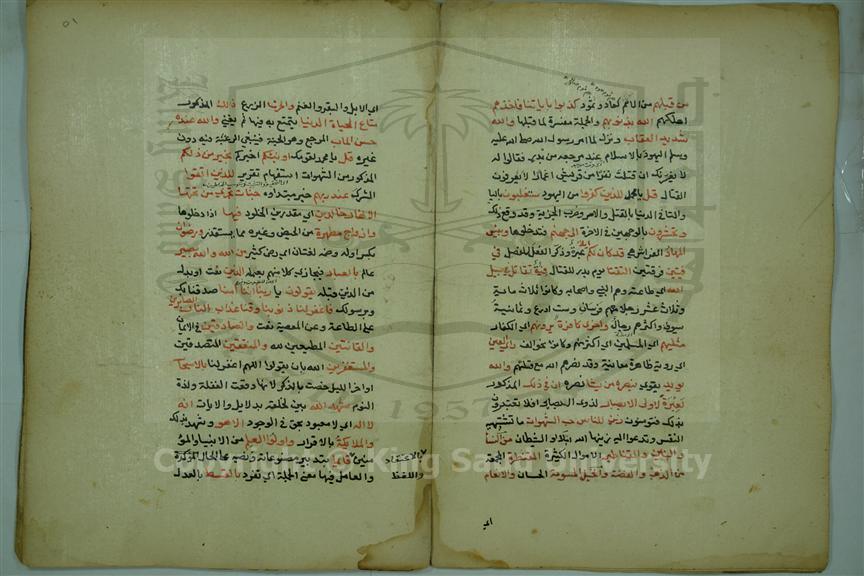 من قبلهم من الامم كعاد وثمود كذبوا باياتنا فاخذهم
اهلكهم الله بذنوبهم والجملة مفسرة لما قبلها والله
شديد العقاب ونزل لما امر رسول الله صلى الله عليه
وسلم اليهود بالاسلام عند مرجعه من بدر فقالوا له
لا يغرنك ان قتلت نفرا من قريش اغمارا لا يعرفون
القتال قل يا محمد للذين كفروا من اليهود ستغلبون بالتا
واليا في الدنيا بالقتل والاسر وضرب الجزية وقد وقع ذلك
وتحشرون بالوجهين في الاخرة الى جهنم فتدخلونها وبئس
المهاد الفراش هي قد كان لكم اية عبرة وذكر الفعل للفصل في
فئتين فرقتين التقتا يوم بدر للقتال فئة تقاتل في سبيل
الله اي طاعته وهم النبي واصحابه وكانوا ثلاث ماية
وثلاث عشر رجلا معهم فرسان وست ادرع وثمانية
سيوف واكثرهم رجالة واخرى كافرة يرونهم اي الكفار
مثليهم اي المسلمين اي اكثر منهم وكانوا نحو الف راي العين
اي روية ظاهرة معاينة وقد نصرهم الله مع قلتهم والله
يويد يقوي بنصره من يشا نصره ان في ذلك المذكور
لعبرة لاولى الابصار لذوي البصاير افلا تعتبرون
بذلك فتومنون زين للناس حب الشهوات ما تشتهيه
النفس وتدعوا اليه زينها الله ابتلا او الشيطان من النسا
والبنين والقناطير الاموال الكثيرة المقنطرة المجمعة
من الذهب والفضة والخيل المسومة الحسان والانعام
اي
اي الابل والبقر والغنم والحرث الزرع ذلك المذكور
متاع الحياة الدنيا يتمتع به فيها ثم يفنى والله عنده
حسن الماب المرجع وهو الجنة فينبغي الرغبة فيه دون
غيره قل يا محمد لقومك اونبئكم اخبركم بخير من ذلكم
المذكور من الشهوات استفهام تقرير للذين اتقوا
الشرك عند ربهم خبر مبتداوه جنات تجري من تحتها
الانهار خالدين اي مقدرين الخلود فيها اذا دخلوها
وازواج مطهرة من الحيض وغيره مما يستقذر ورضوان
بكسر اوله وضمه لغتان اي رضى كثير من الله والله بصير
عالم بالعباد فيجازي كلا منهم بعمله الذين نعت او بدل
من الذين قبله يقولون يا ربنا اننا امنا صدقنا بك
وبرسولك فاغفر لنا ذنوبنا وقنا عذاب النار الصابرين
على الطاعة وعن المعصية نعت والصادقين في الايمان
والقانتين المطيعين لله والمنفقين المتصدقين
والمستغفرين الله بان يقولوا اللهم اغفر لنا بالاسحار
اواخر الليل خصت بالذكر لانها وقت الغفلة ولذة
النوم شهد الله بين لخلقه بدلايل والايات انه
لا اله اي لا معبود بحق في الوجود الا هو وشهد بذلك
والملايكة بالاقرار واولوا العلم من الانبيا والمو
منين بالاعتقاد واللفظ قايما بتدبير مصنوعاته ونصبه على الحال المؤكدة
والعامل فيها معنى الجملة اي تفرد بالقسط بالعدل
Copyright © King Saud University
1957